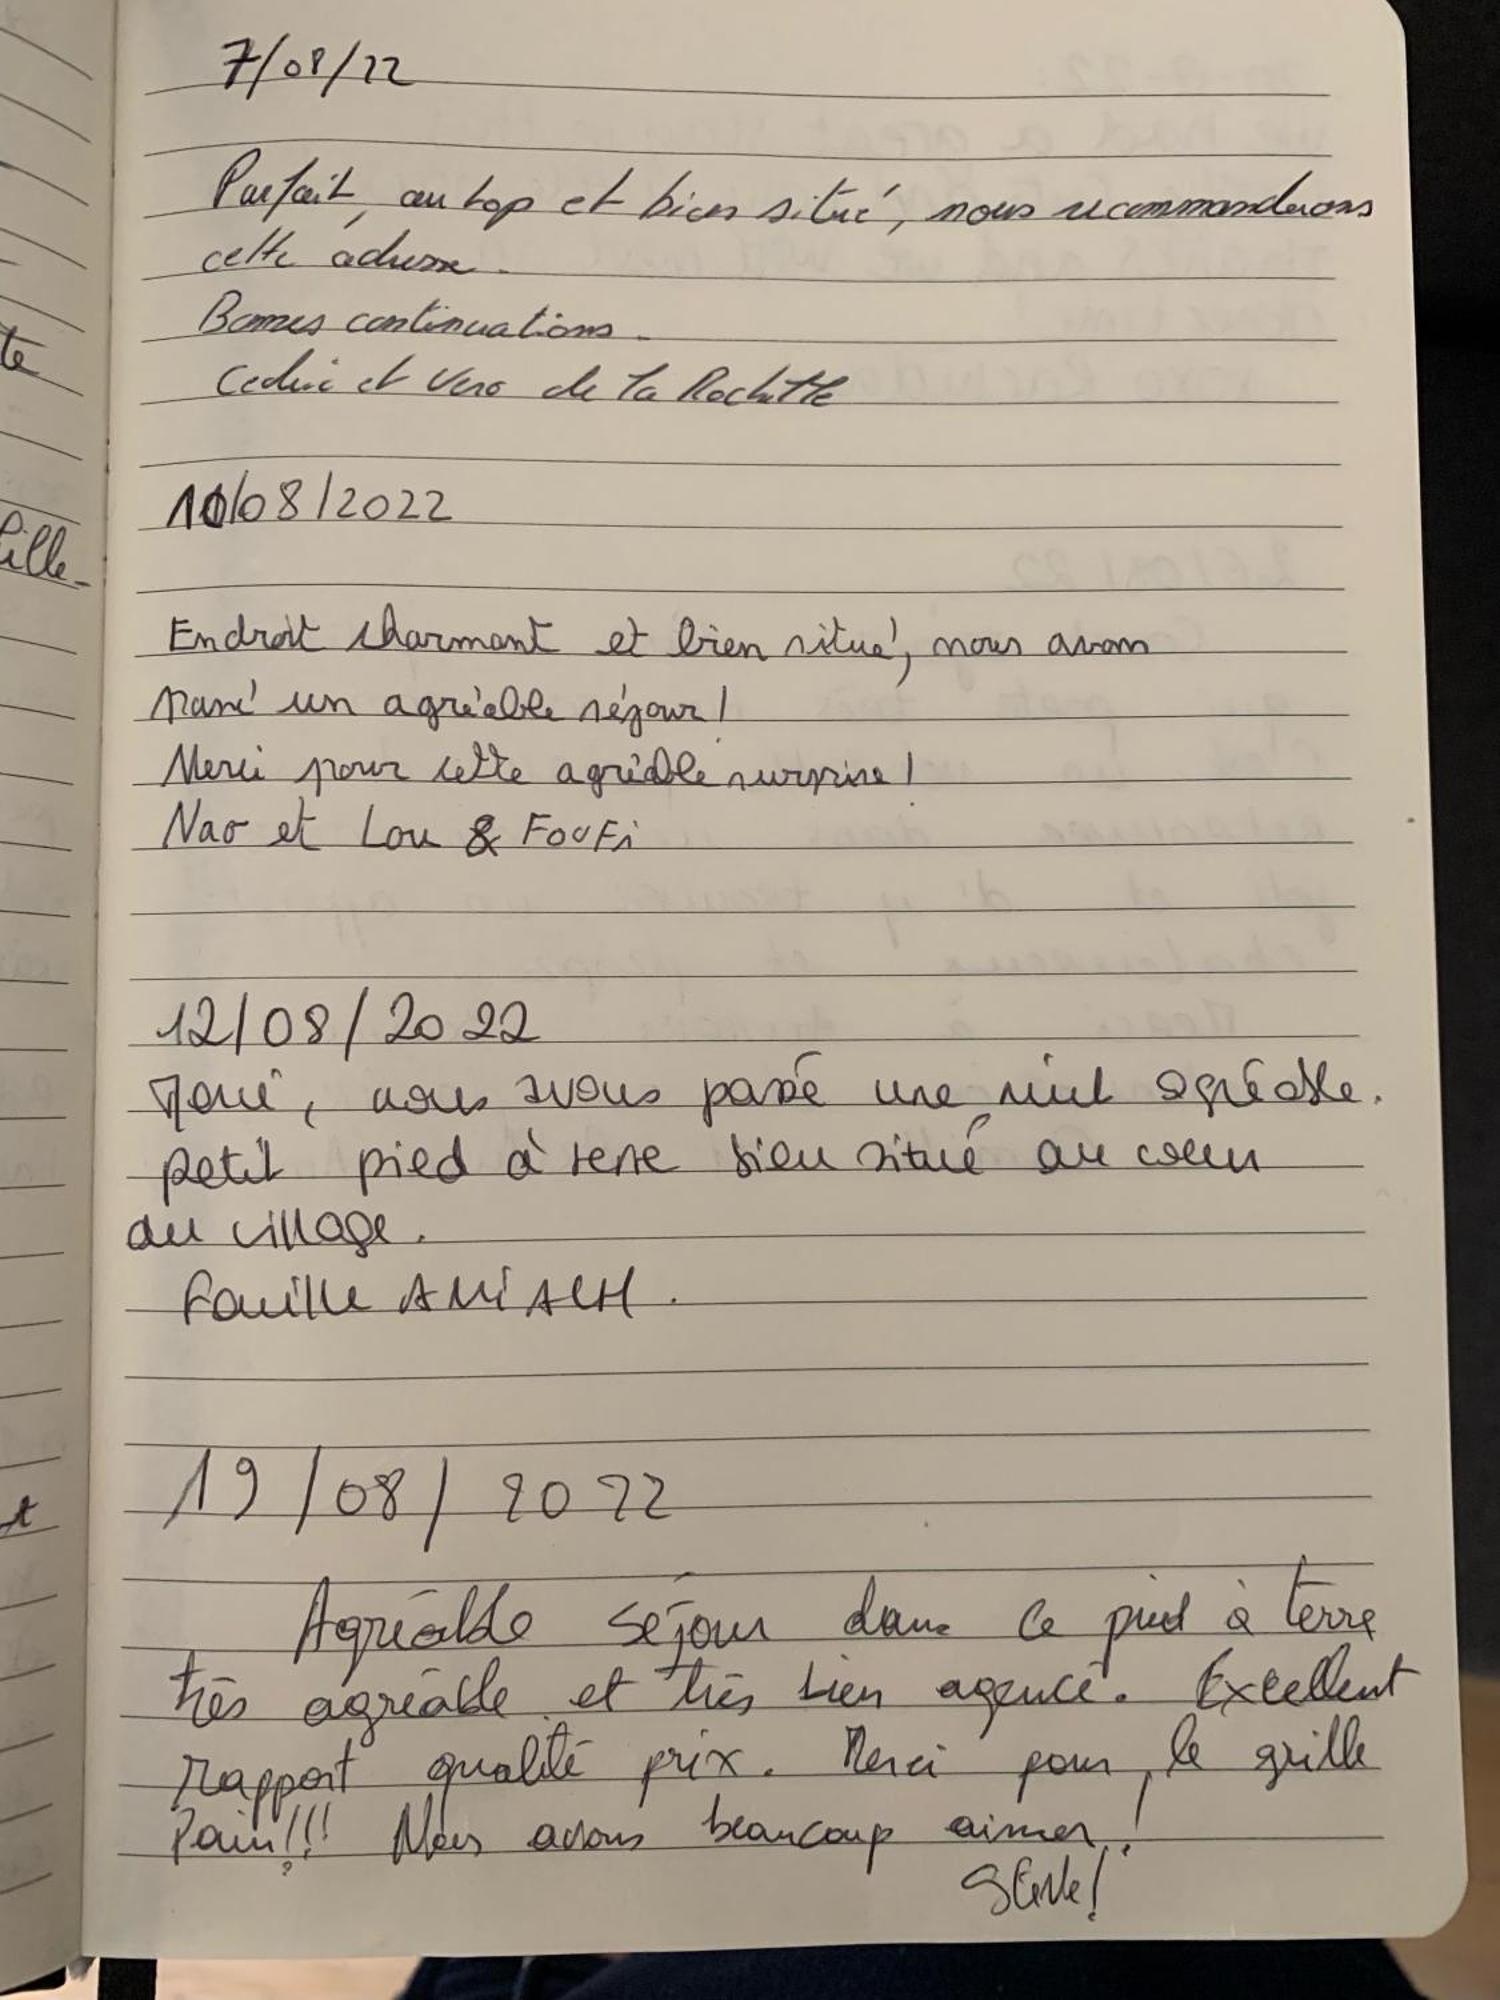 7/08/22
Parfait, au top et bien situé, nous recommanderons
cette adresse.
Bonnes continuations.
Cedric et Vero de la Rochette
10/08/2022
Endroit charmant et bien situé, nous avons
passé un agréable séjour!
Merci pour cette agréable surprise!
Nao et Lou & FouFi
12/08/2022
nous avons passé une nuit agréable.
petit pied à terre bien situé au coeur
du village.
famille
19/08/2022
Agréable séjour dans ce pied à terre
très agréable et très bien agencé. Excellent
rapport qualité prix. Merci pour le grille
Pain!!! Nous avons beaucoup aimer!
te
fille
t